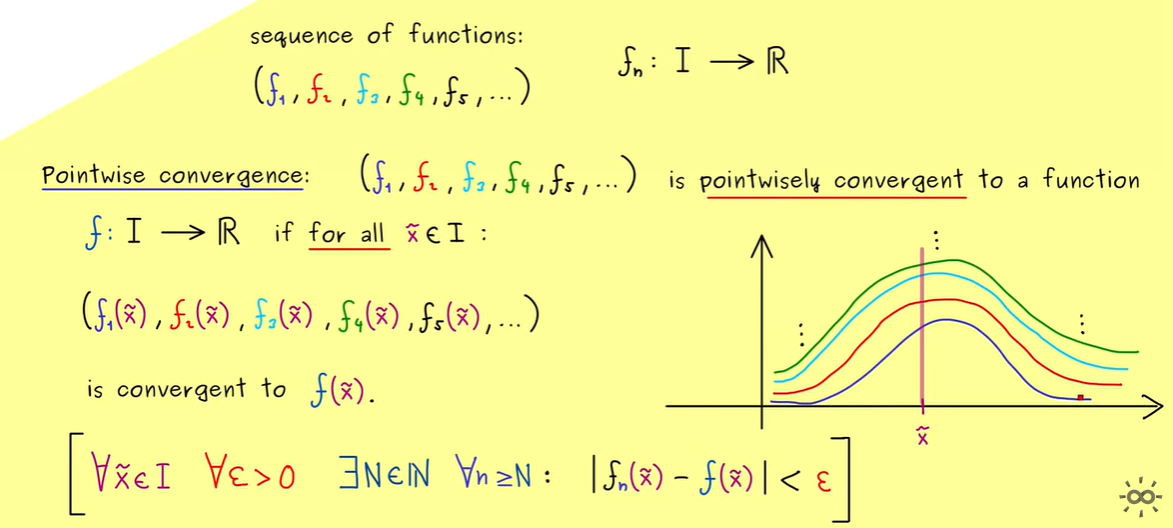 sequence of functions:
(f₁, f₂, f₃, f₄, f₅, ...) fₙ: I ⟶ ℝ
Pointwise convergence: (f₁, f₂, f₃, f₄, f₅, ...) is pointwisely convergent to a function
f: I ⟶ ℝ if for all x̃ ∈ I :
(f₁(x̃), f₂(x̃), f₃(x̃), f₄(x̃), f₅(x̃), ...)
is convergent to f(x̃).
x̃
[∀x̃∈I ∀ε>0 ∃N∈ℕ ∀n≥N: |fₙ(x̃) - f(x̃)| < ε]